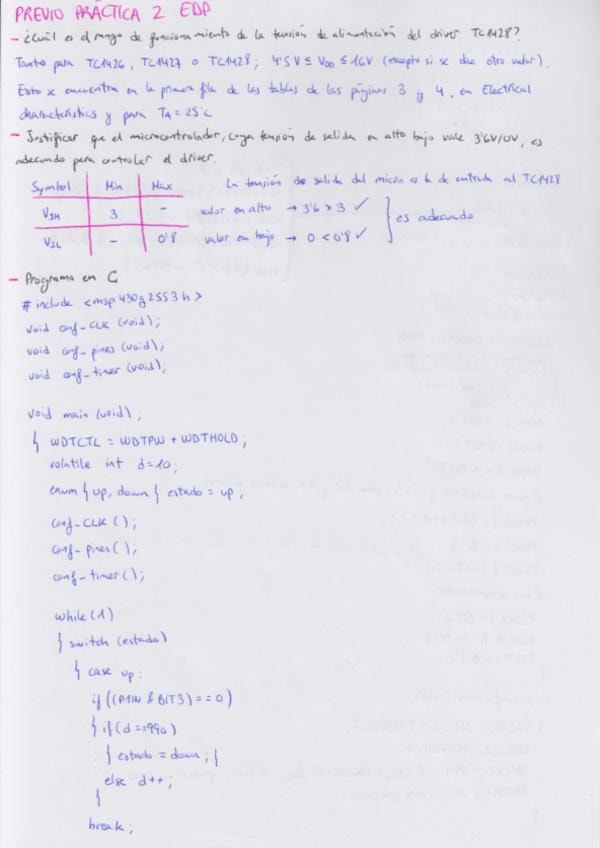 PREVIO PRÁCTICA 2 EDP
- ¿Cuál es el rango de funcionamiento de la tensión de alimentación del driver TC1428?
Tanto para TC1426, TC1427 o TC1428; 4'5V ≤ VDD ≤ 16V (excepto si se dice otro valor).
Esto se encuentra en la primera fila de las tablas de las páginas 3 y 4, en Electrical
characteristics y para TA = 25°C
- Justificar que el microcontrolador, cuya tensión de salida en alto bajo vale 3'6V/0V, es
adecuado para controlar el driver.
Symbol Min Max La tensión de salida del micro es la de entrada al TC1428
VIH 3 - valor en alto → 3'6 > 3 ✓
VIL - 0'8 valor en bajo → 0 < 0'8 ✓
} es adecuado
- Programa en C
#include <msp430g2553h>
void conf_CLK (void);
void conf_pines (void);
void conf_timer (void);
void main (void);
{ WDTCTL = WDTPW + WDTHOLD;
volatile int d=10;
enum { up, down } estado = up;
conf_CLK ();
conf_pines ();
conf_timer ();
while (1)
{ switch (estado)
{ case up:
if ((P1IN & BIT3) == 0)
{ if (d==990)
{ estado = down; }
else d++;
}
break;